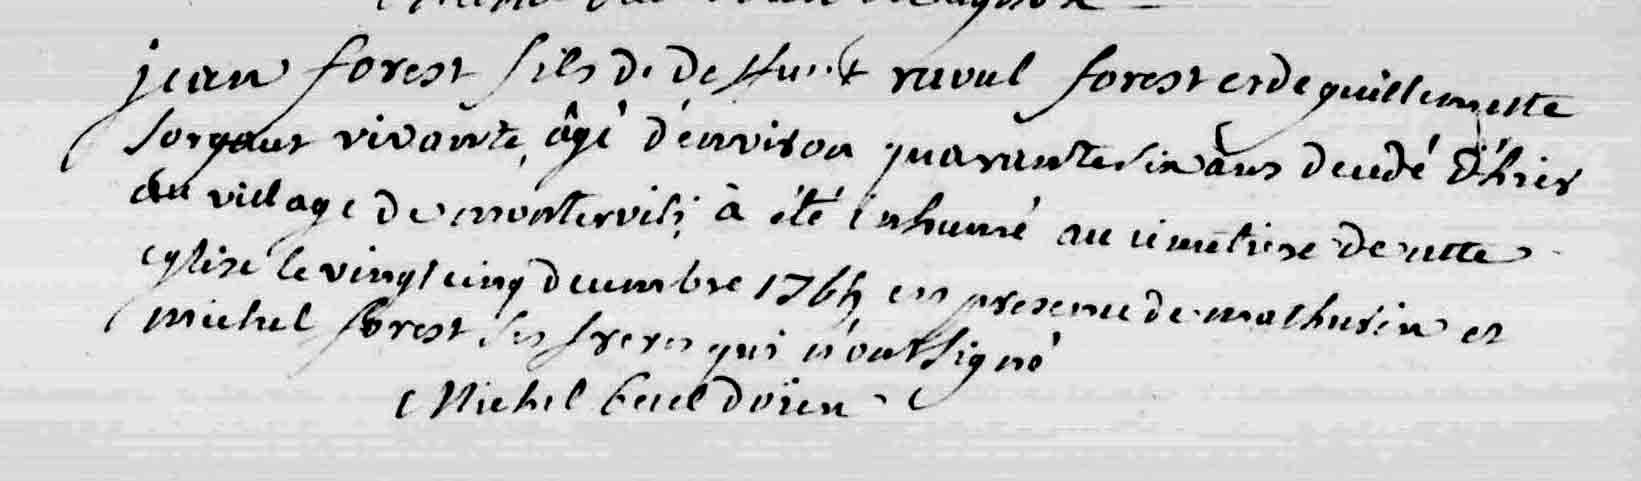 jean forest fils de deffunt raoul forest et de guillemette
Sorgent vivante, âgé d'environ quarante six ans decedé d'hier
au village de montervili à été inhumé au cimetiere de cette
eglise le vingt cinq decembre 1764 en presence de mathurin et
michel forest ses freres qui n'ont signé
Michel doïen